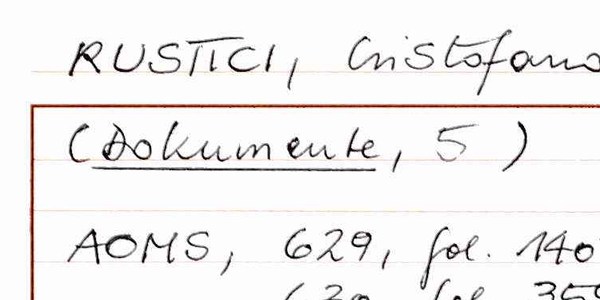 RUSTICI, Cristofano
(Dokumente, 5)
AOMS, 629, fol. 140
630, fol. 359